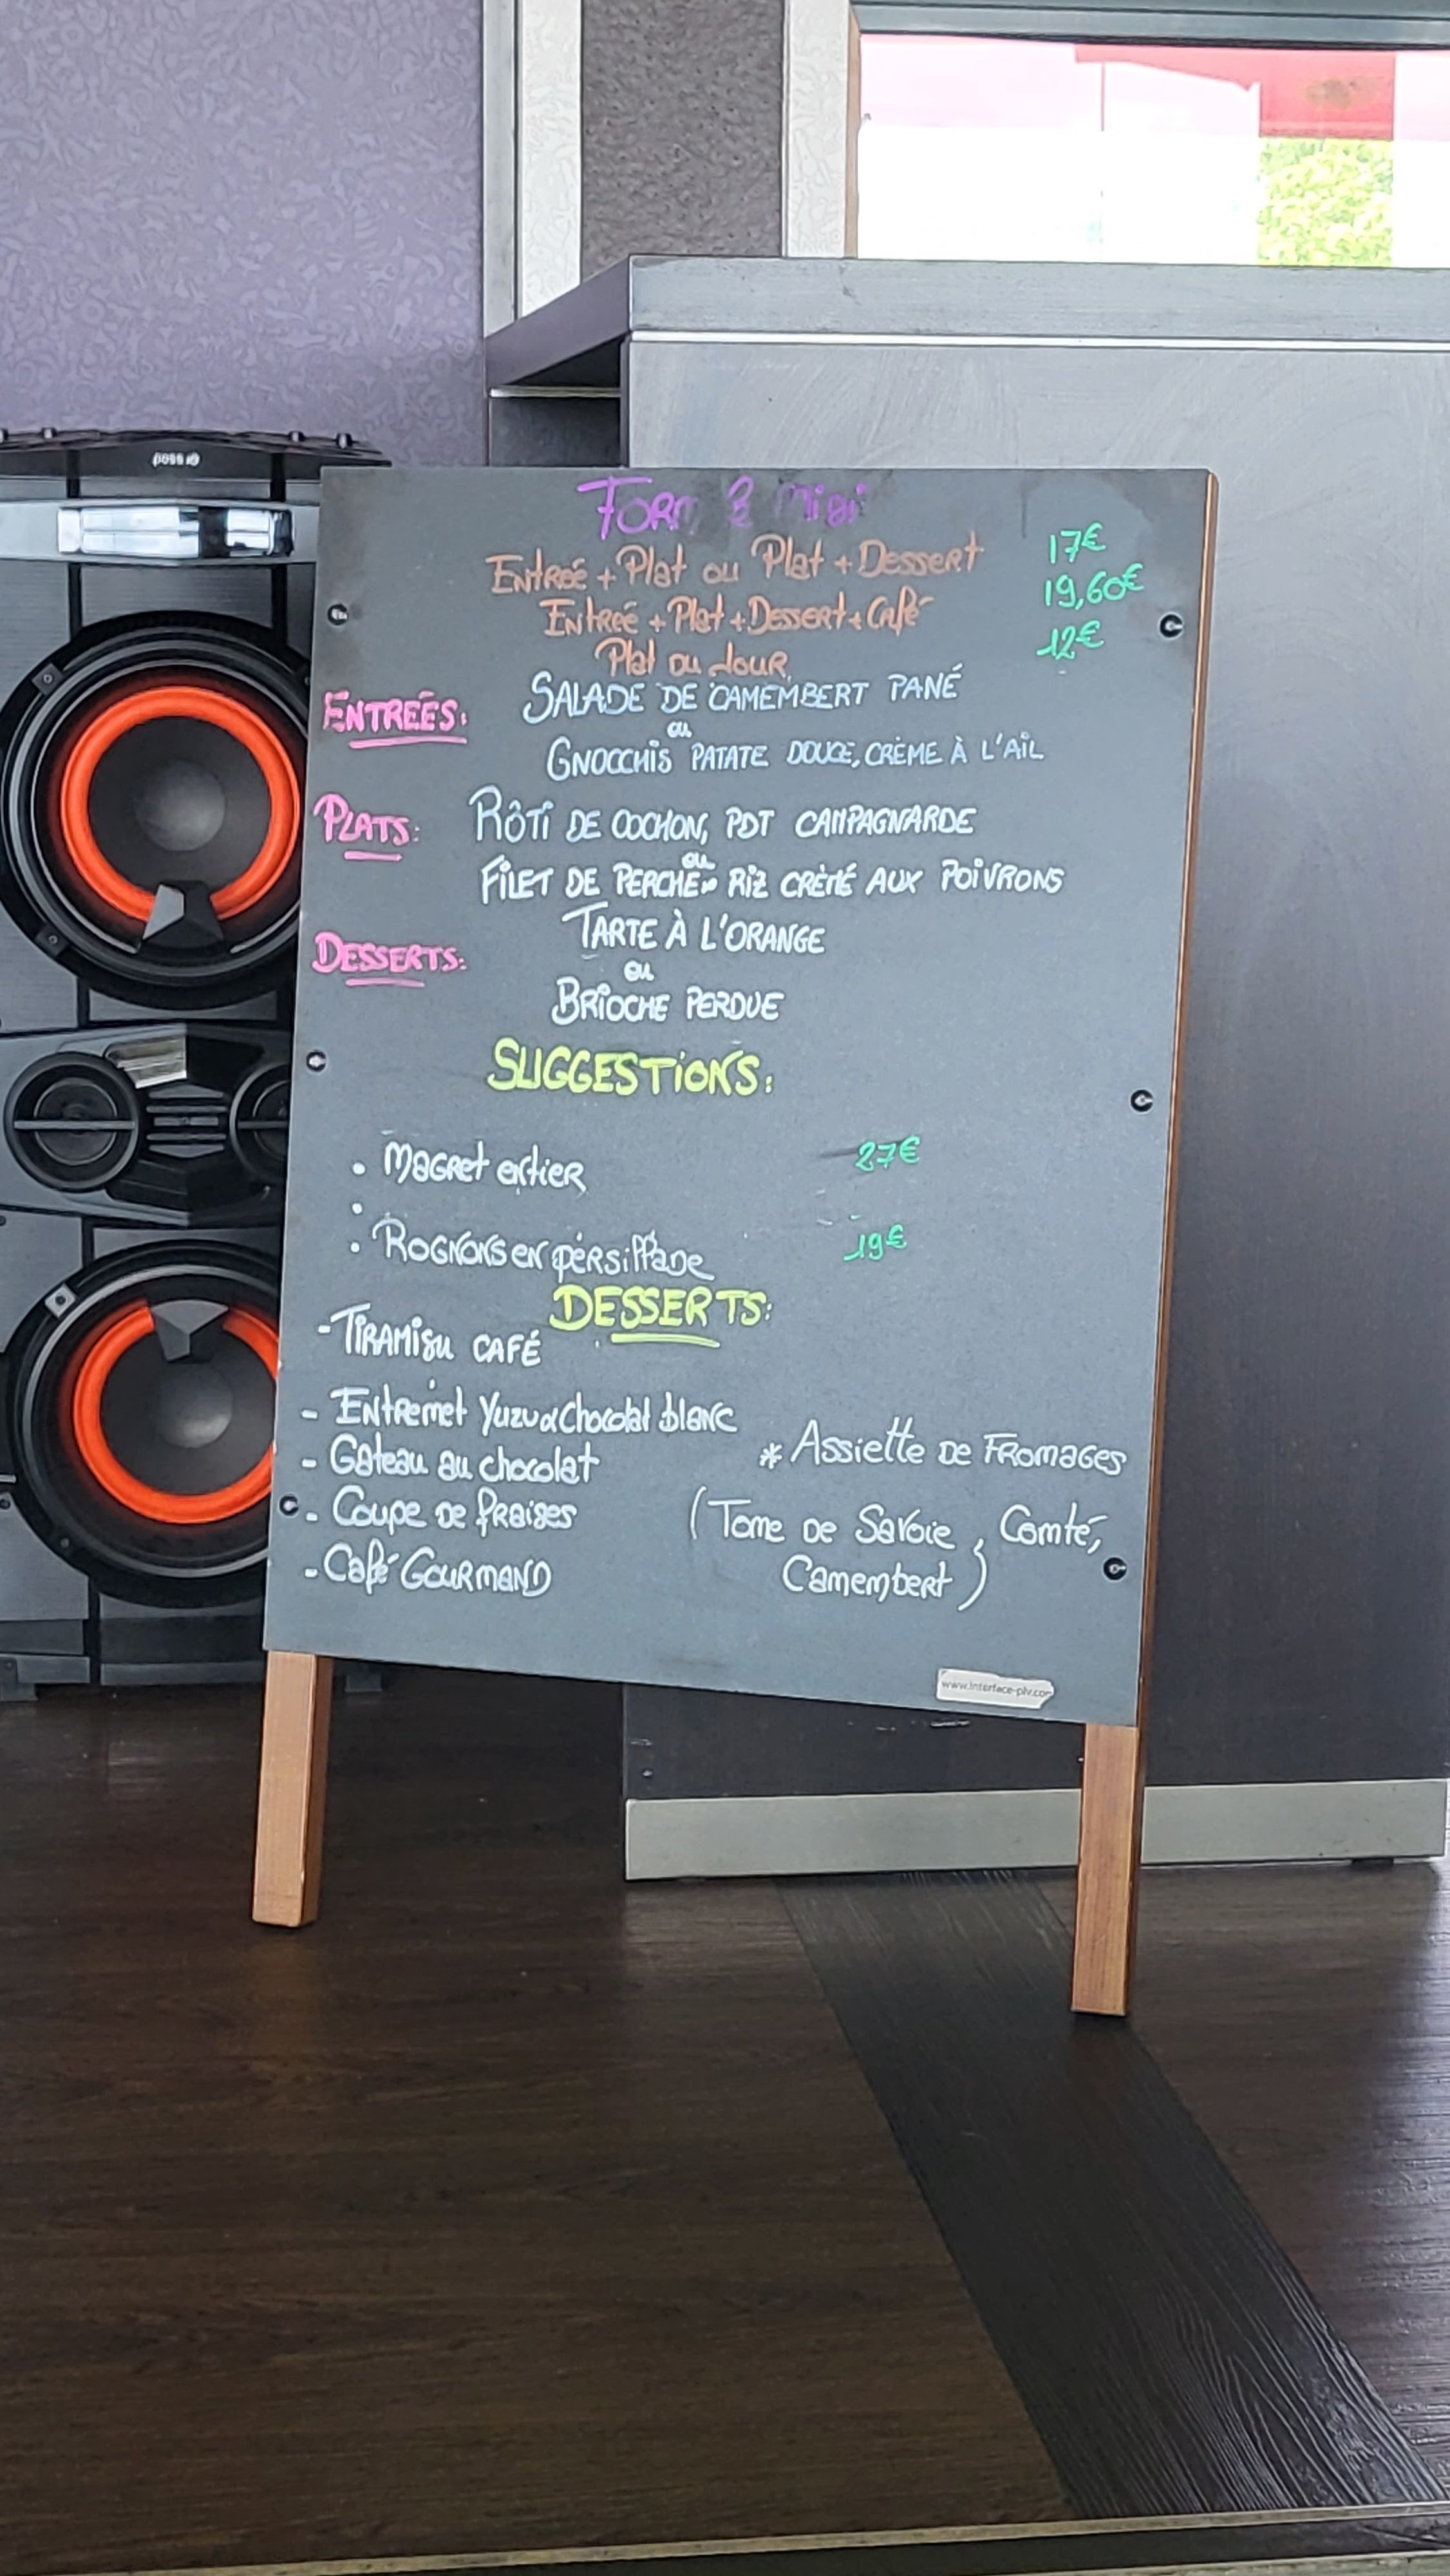 Midi
Entrée + Plat ou Plat + Dessert 17€
Entrée + Plat + Dessert + Café 19,60€
Plat du Jour 12€
ENTRÉES: SALADE DE CAMEMBERT PANÉ
ou
GNOCCHIS PATATE DOUCE, CRÈME À L'AIL
PLATS: RÔTI DE COCHON, PDT CAMPAGNARDE
ou
FILET DE PERCHE RIZ CRÈMÉ AUX POIVRONS
DESSERTS: TARTE À L'ORANGE
ou
BRIOCHE PERDUE
SUGGESTIONS:
• Magret entier 27€
•
• Rognons en persillade 19€
DESSERTS:
- TIRAMISU CAFÉ
- Entremet Yuzu & Chocolat blanc
- Gâteau au chocolat
- Coupe de fraises
- Café Gourmand
* Assiette de Fromages
(Tome de Savoie, Comté,
Camembert)
www.interface-plv.com